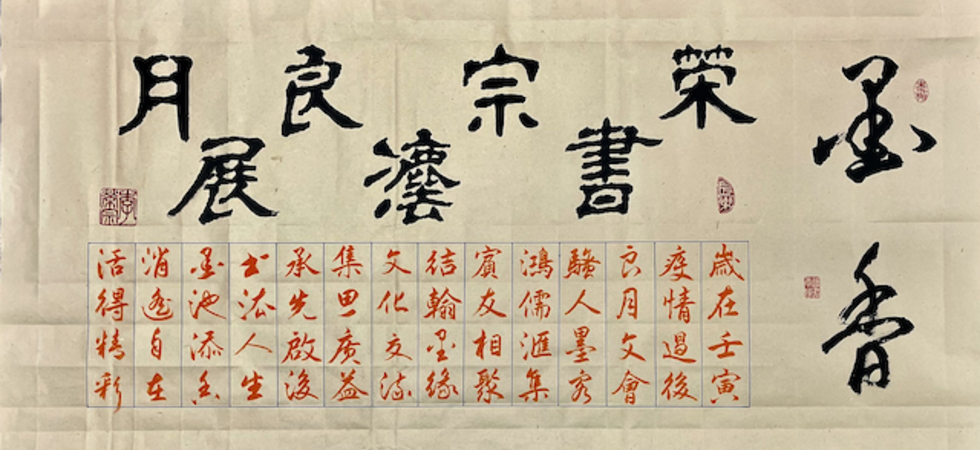 墨香
榮宗良月
書灋展
歲在壬寅
疫情過後
良月文會
騷人墨客
鴻儒滙集
賓友相聚
結翰墨緣
文化交流
集思廣益
承先啟後
书法人生
墨池添香
消遙自在
活得精彩
李榮宗